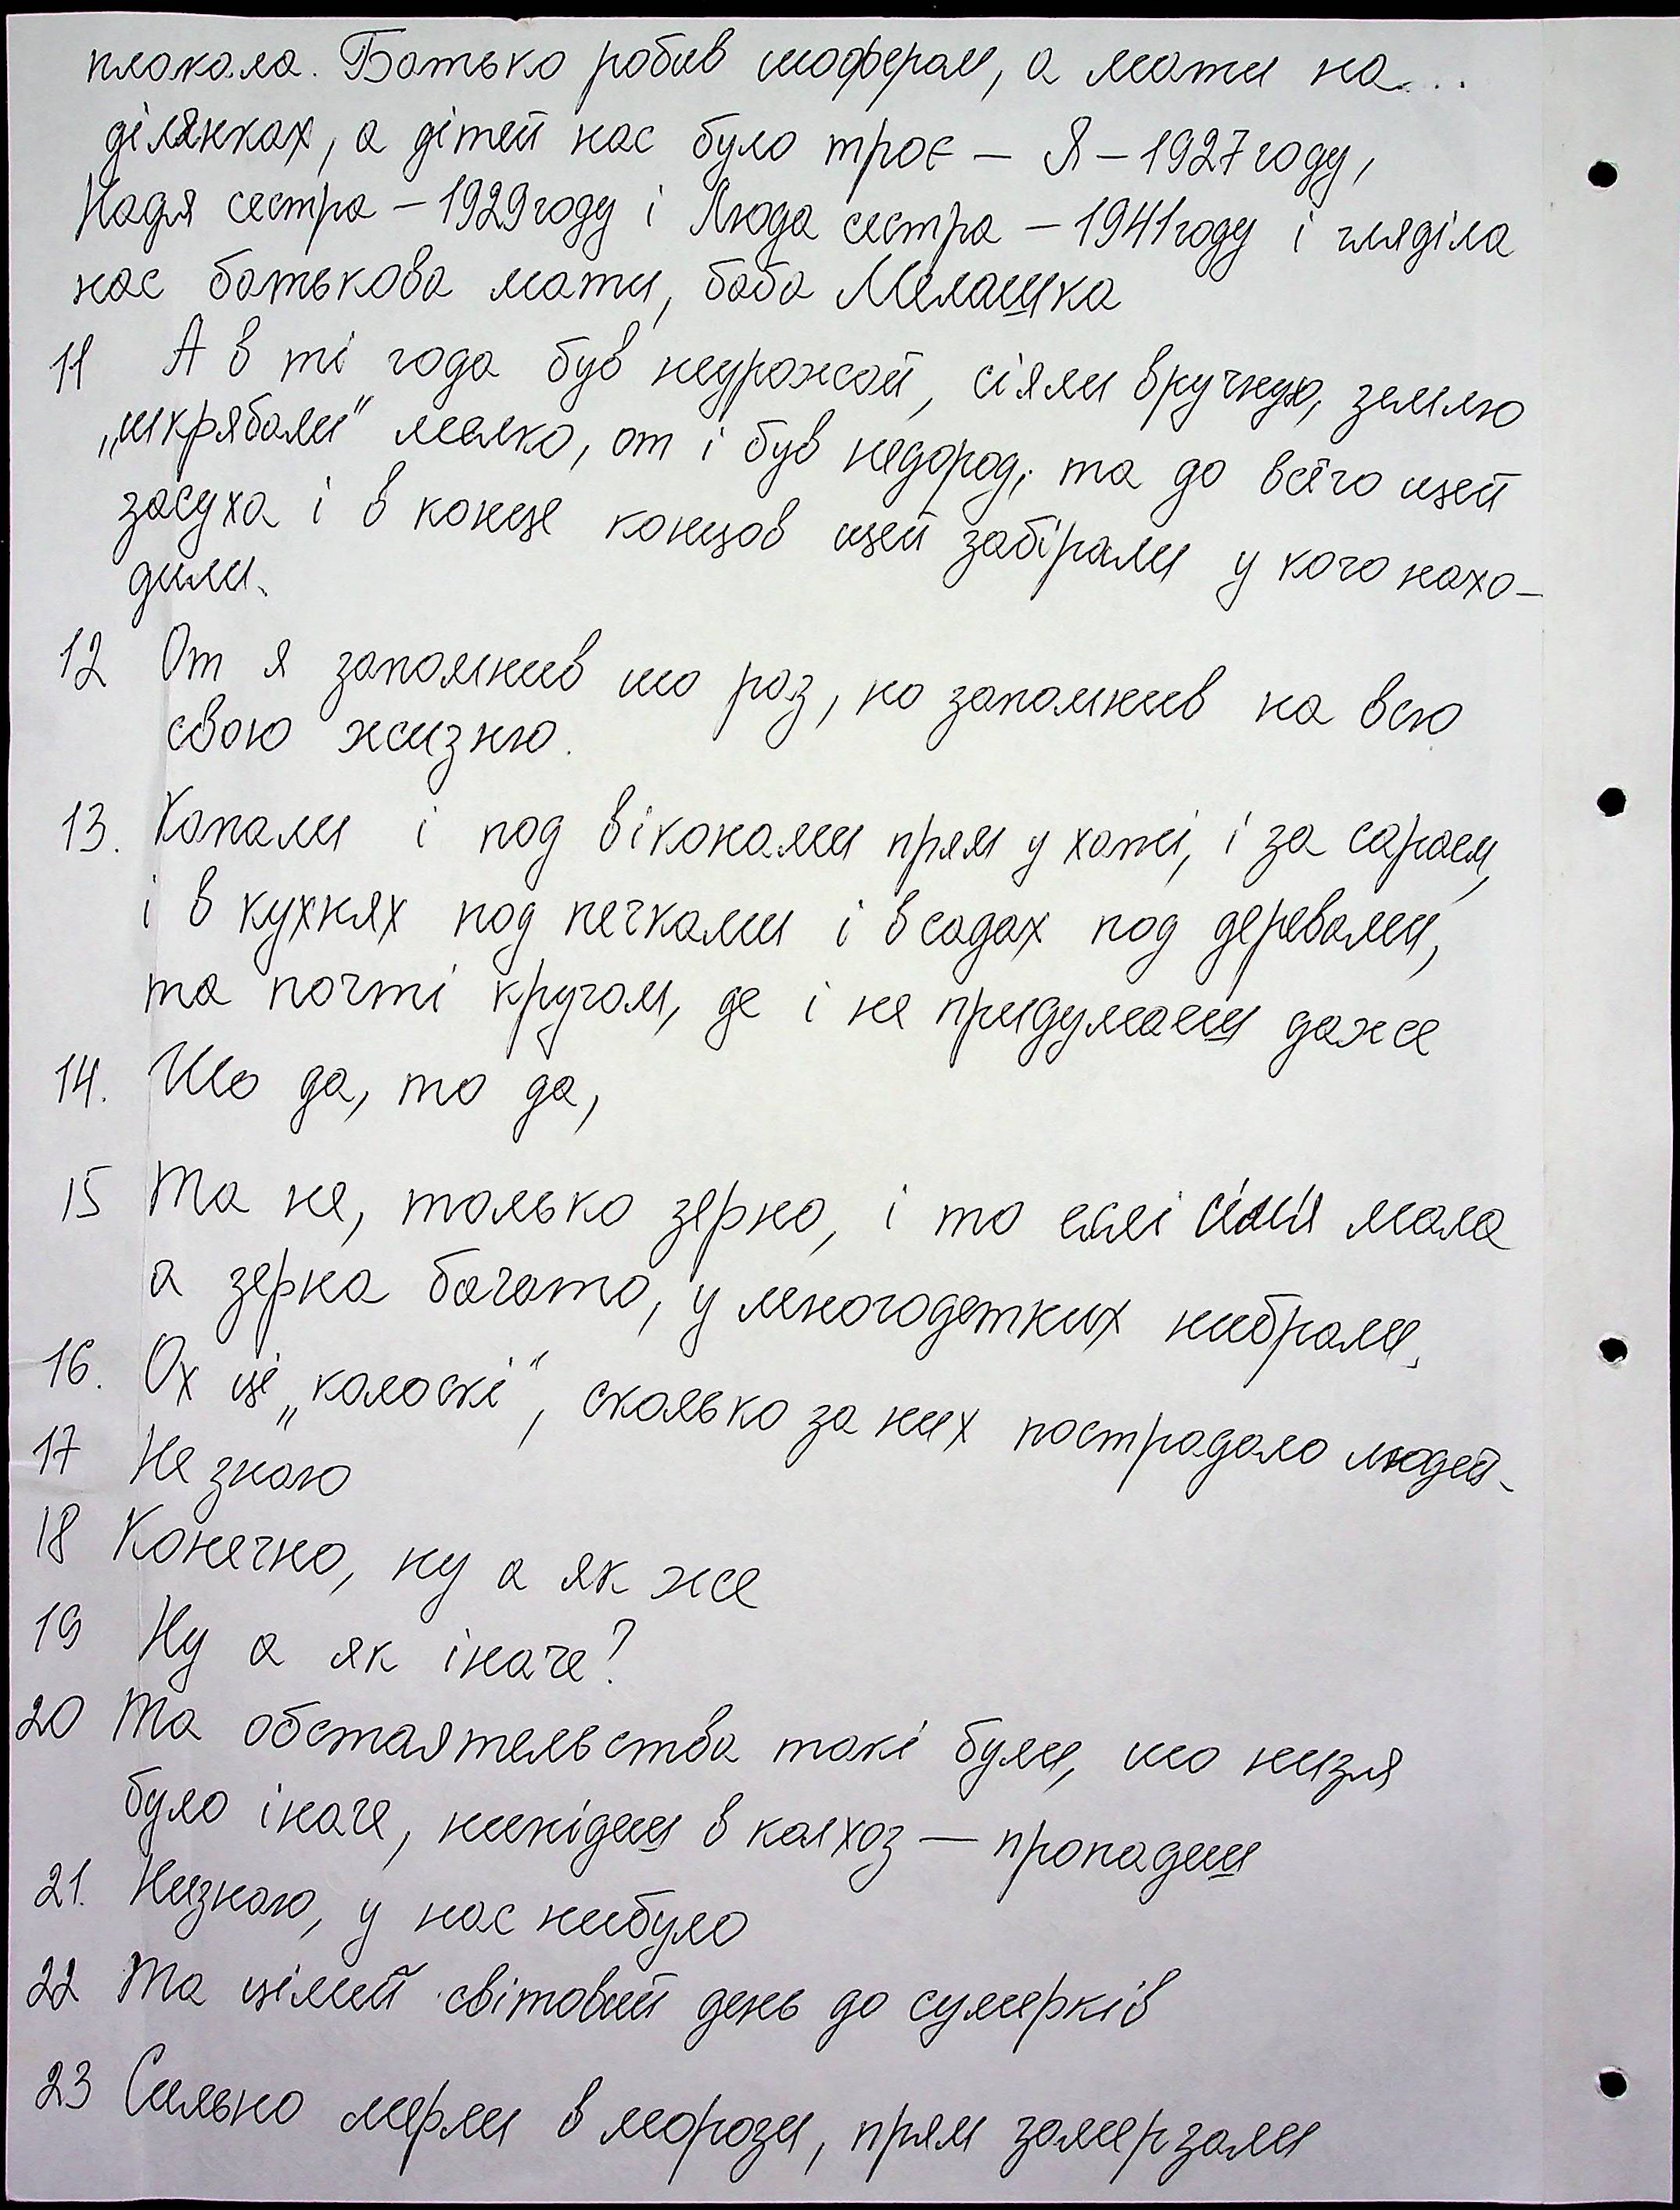 плакала. Батько робив шофером, а мати на...
ділянках, а дітей нас було троє – Я – 1927 году,
Надя сестра – 1929 году і Люда сестра – 1941 году і гляділа
нас батькова мати, баба Мелашка
11 А в ті года був неурожай, сіяли вручную, землю
„шкрябали" мелко, от і був недород, та до всього щей
засуха і в конце концов щей забірали у кого нахо-
дили.
12 От я запомнив шо раз, но запомнив на всю
свою жизню.
13. Копали і под віконами прям у хаті, і за сараєм,
і в кухнях под печками і в садах под деревами,
та почті кругом, де і не придумаеш даже
14. Шо да, то да,
15 Та не, только зерно, і то еслі сім'я мала
а зерна багато, у многодетких нибрали.
16. Ох ці „колоскі", сколько за них пострадало людей.
17 Не знаю
18 Конечно, ну а як же
19 Ну а як іначе?
20 Та обстаятельства такі були, шо низя
було іначе, нипідиш в колхоз — пропадиш
21. Низнаю, у нас нибуло
22 Та цілий світовий день до сумерків
23 Сильно мерли в морози, прям замерзали